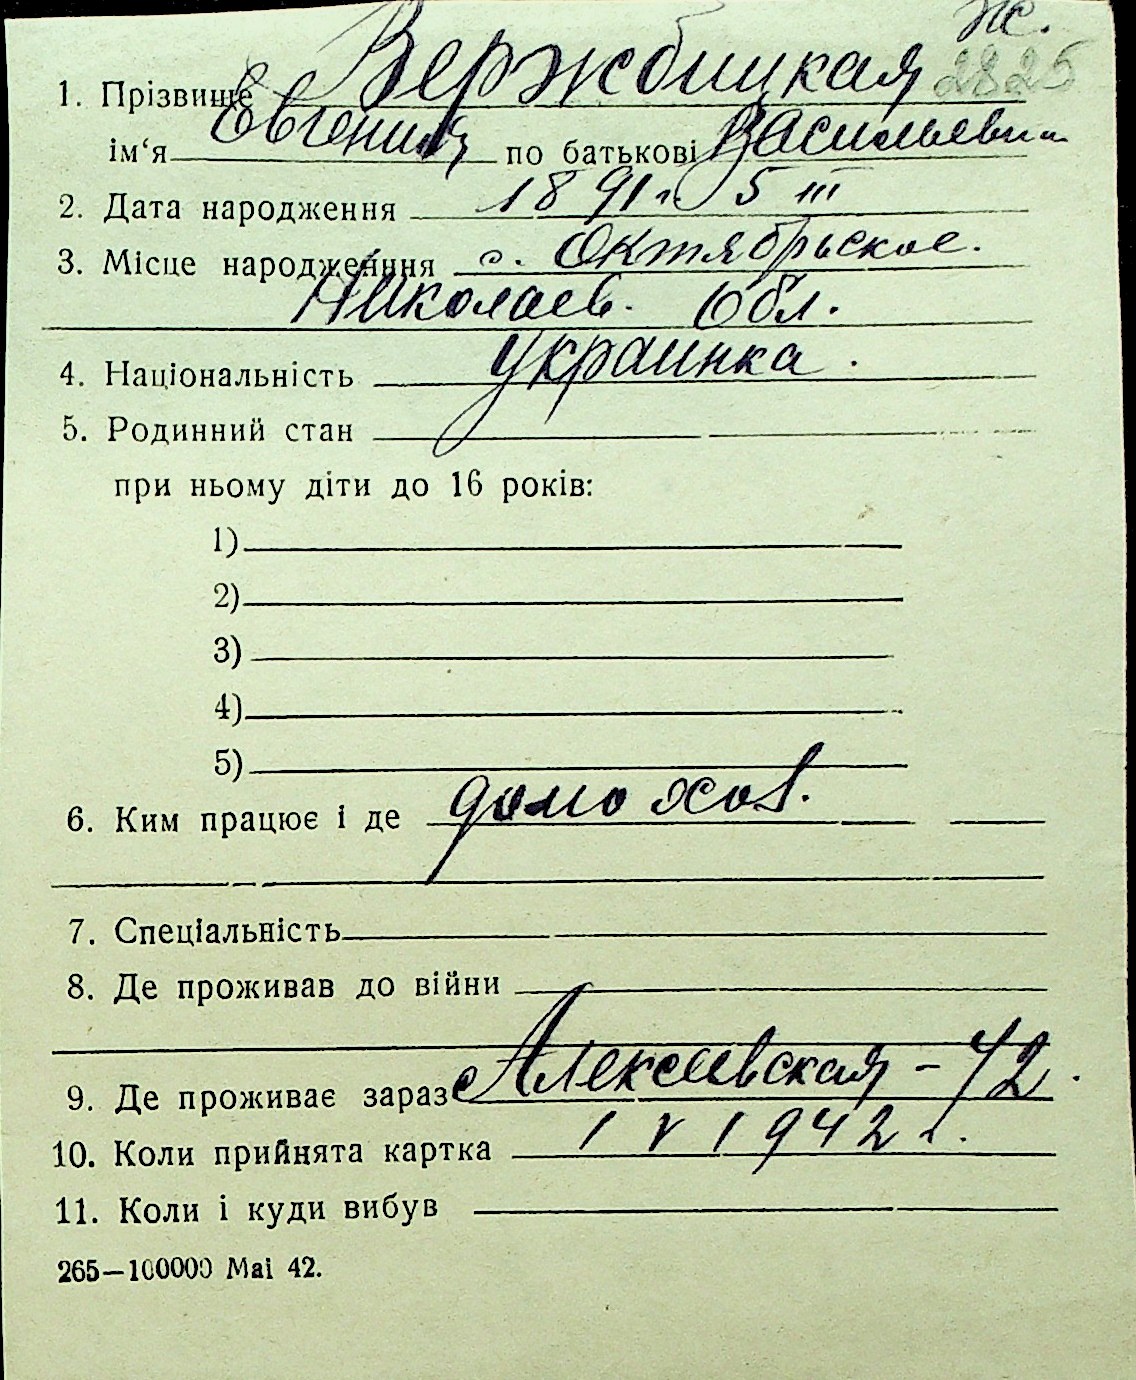 ж.
1. Прізвище Вержбицкая 2825
ім‘я Евгения по батькові Васильевна
2. Дата народження 1891 г. 5 III
3. Місце народженння с. Октябрьское.
Николаев. Обл.
4. Національність украинка.
5. Родинний стан
при ньому діти до 16 років:
1)
2)
3)
4)
5)
6. Ким працює і де домохоз.
7. Спеціальність
8. Де проживав до війни
9. Де проживає зараз Алексеевская - 42.
10. Коли прийнята картка 1 V 1942 г.
11. Коли і куди вибув
265—100000 Маі 42.